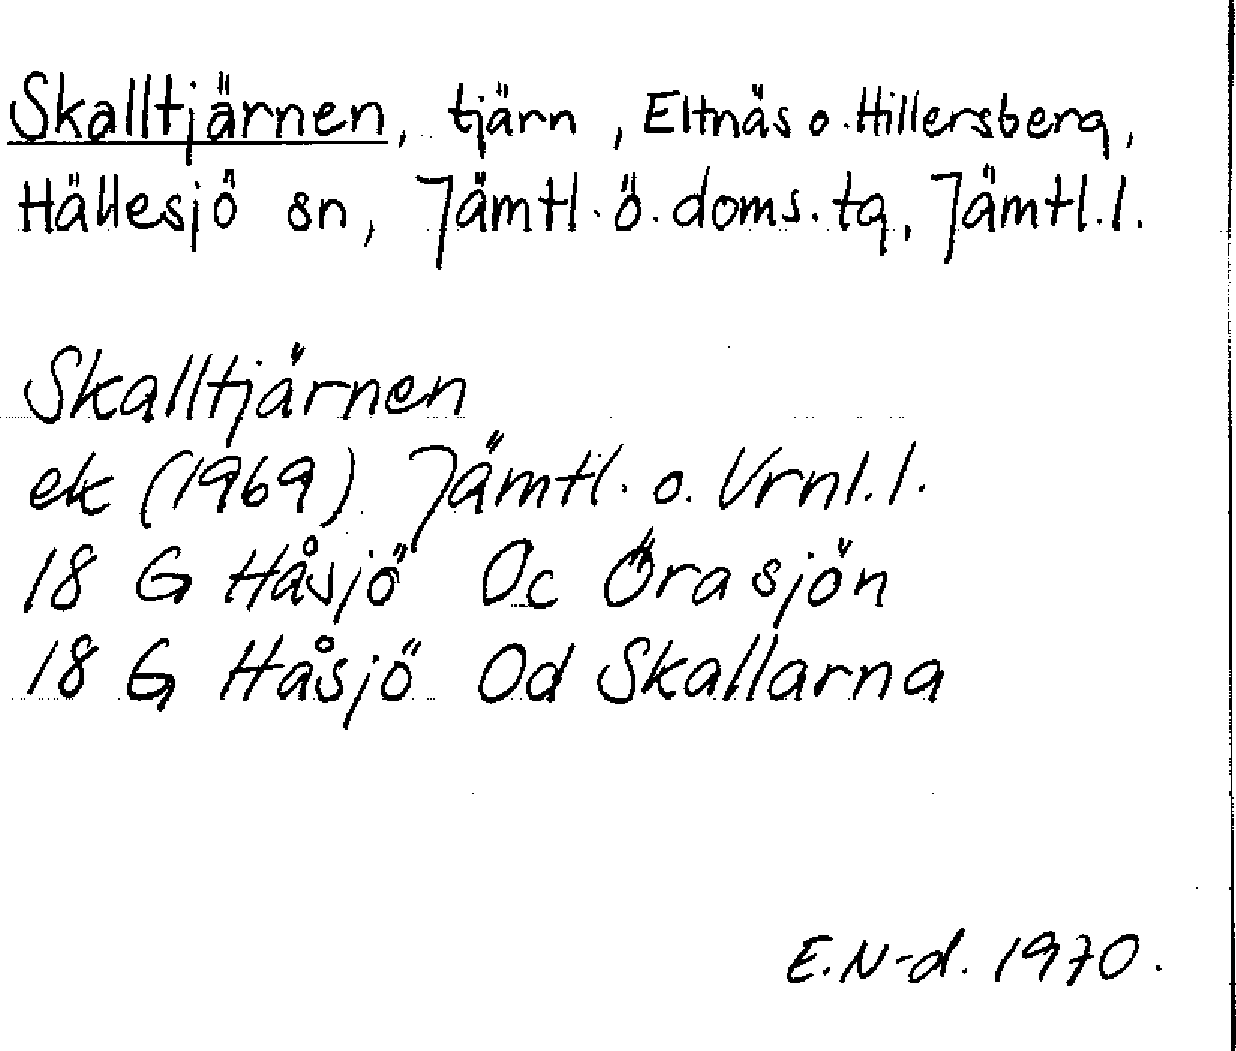 Skalltjärnen, tjärn, Eltnäs o. Hillersberg,
Hällesjö sn, Jämtl. ö. doms. tg, Jämtl. l.
Skalltjärnen
ek (1969) Jämtl. o. Vrnl. l.
18 G Håsjö Oc Örasjön
18 G Håsjö Od Skallarna
E. N-d. 1970.